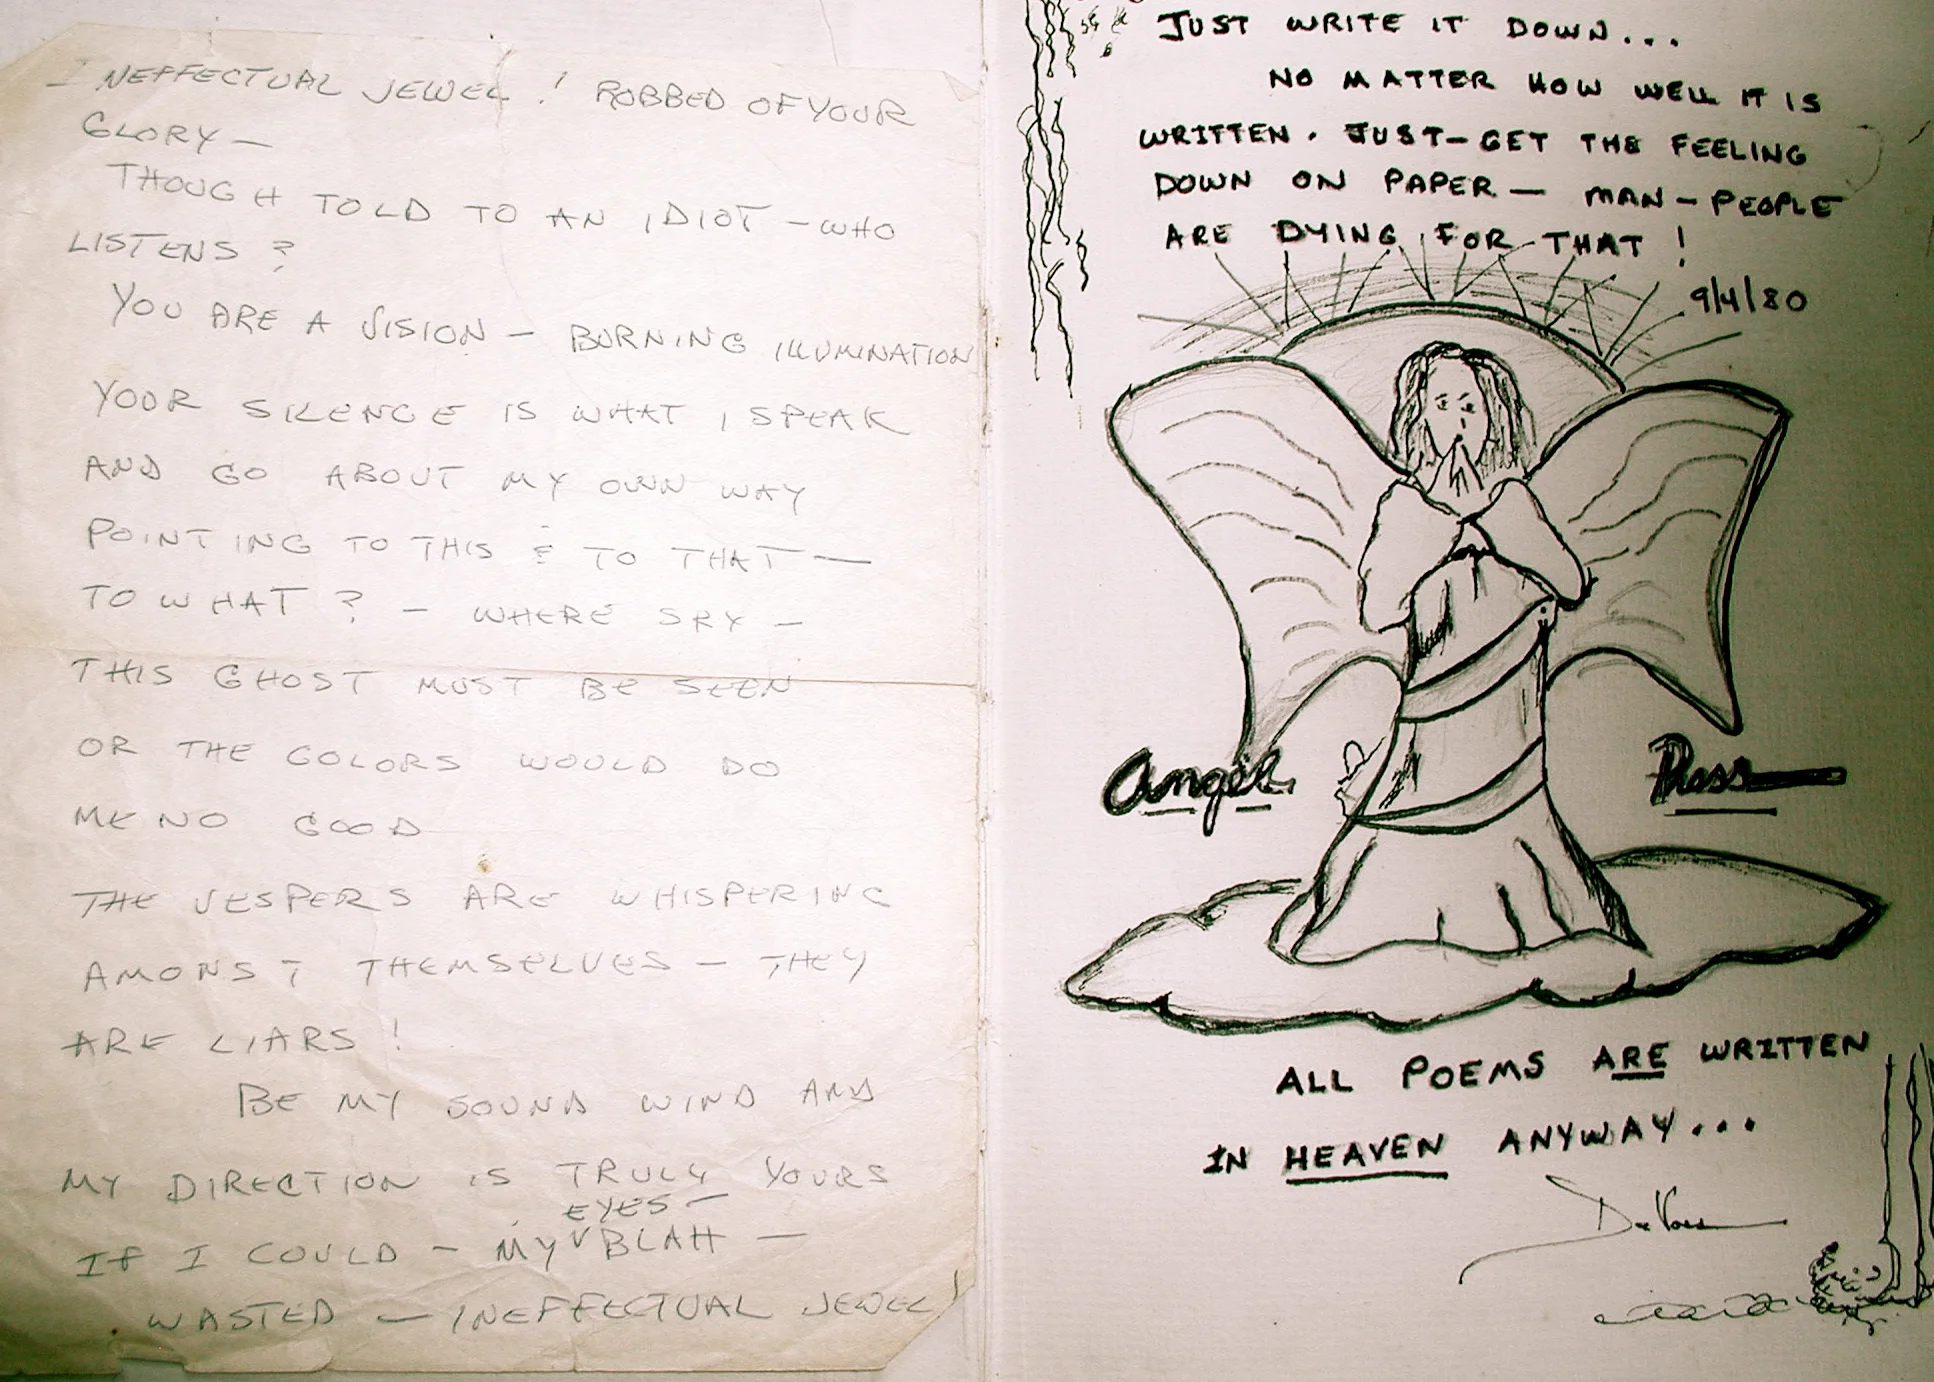 INEFFECTUAL JEWEL! ROBBED OF YOUR
GLORY —
THOUGH TOLD TO AN IDIOT — WHO
LISTENS?
YOU ARE A VISION — BURNING ILLUMINATION
YOUR SILENCE IS WHAT I SPEAK
AND GO ABOUT MY OWN WAY
POINTING TO THIS & TO THAT —
TO WHAT? — WHERE SRY —
THIS GHOST MUST BE SEEN
OR THE COLORS WOULD DO
ME NO GOOD
THE VESPERS ARE WHISPERING
AMONST THEMSELVES — THEY
ARE LIARS!
BE MY SOUND WIND AND
MY DIRECTION IS TRULY YOURS
EYES —
IF I COULD — MY BLAH —
WASTED — INEFFECTUAL JEWEL!
JUST WRITE IT DOWN...
NO MATTER HOW WELL IT IS
WRITTEN. JUST — GET THE FEELING
DOWN ON PAPER — MAN — PEOPLE
ARE DYING FOR THAT!
9/4/80
Angel Press
ALL POEMS ARE WRITTEN
IN HEAVEN ANYWAY...
DeVoss